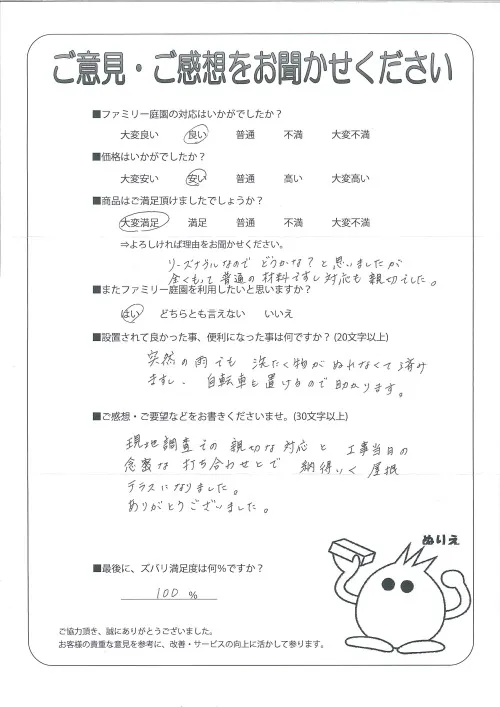 ご意見・ご感想をお聞かせください
■ファミリー庭園の対応はいかがでしたか？
大変良い 良い 普通 不満 大変不満
■価格はいかがでしたか？
大変安い 安い 普通 高い 大変高い
■商品はご満足頂けましたでしょうか？
大変満足 満足 普通 不満 大変不満
⇒よろしければ理由をお聞かせください。
リーズナブルなので どうかな？と思いましたが
全くもって普通の材料ですし対応も親切でした。
■またファミリー庭園を利用したいと思いますか？
はい どちらとも言えない いいえ
■設置されて良かった事、便利になった事は何ですか？(20文字以上)
突然の雨でも 洗たく物がぬれなくて済み
ますし、自転車も置けるので助かります。
■ご感想・ご要望などをお書きくださいませ。(30文字以上)
現地調査での親切な対応と 工事当日の
念密な打ち合わせとで 納得いく屋根
テラスになりました。
ありがとうございました。
ぬりえ
■最後に、ズバリ満足度は何％ですか？
100 %
ご協力頂き、誠にありがとうございました。
お客様の貴重な意見を参考に、改善・サービスの向上に活かして参ります。